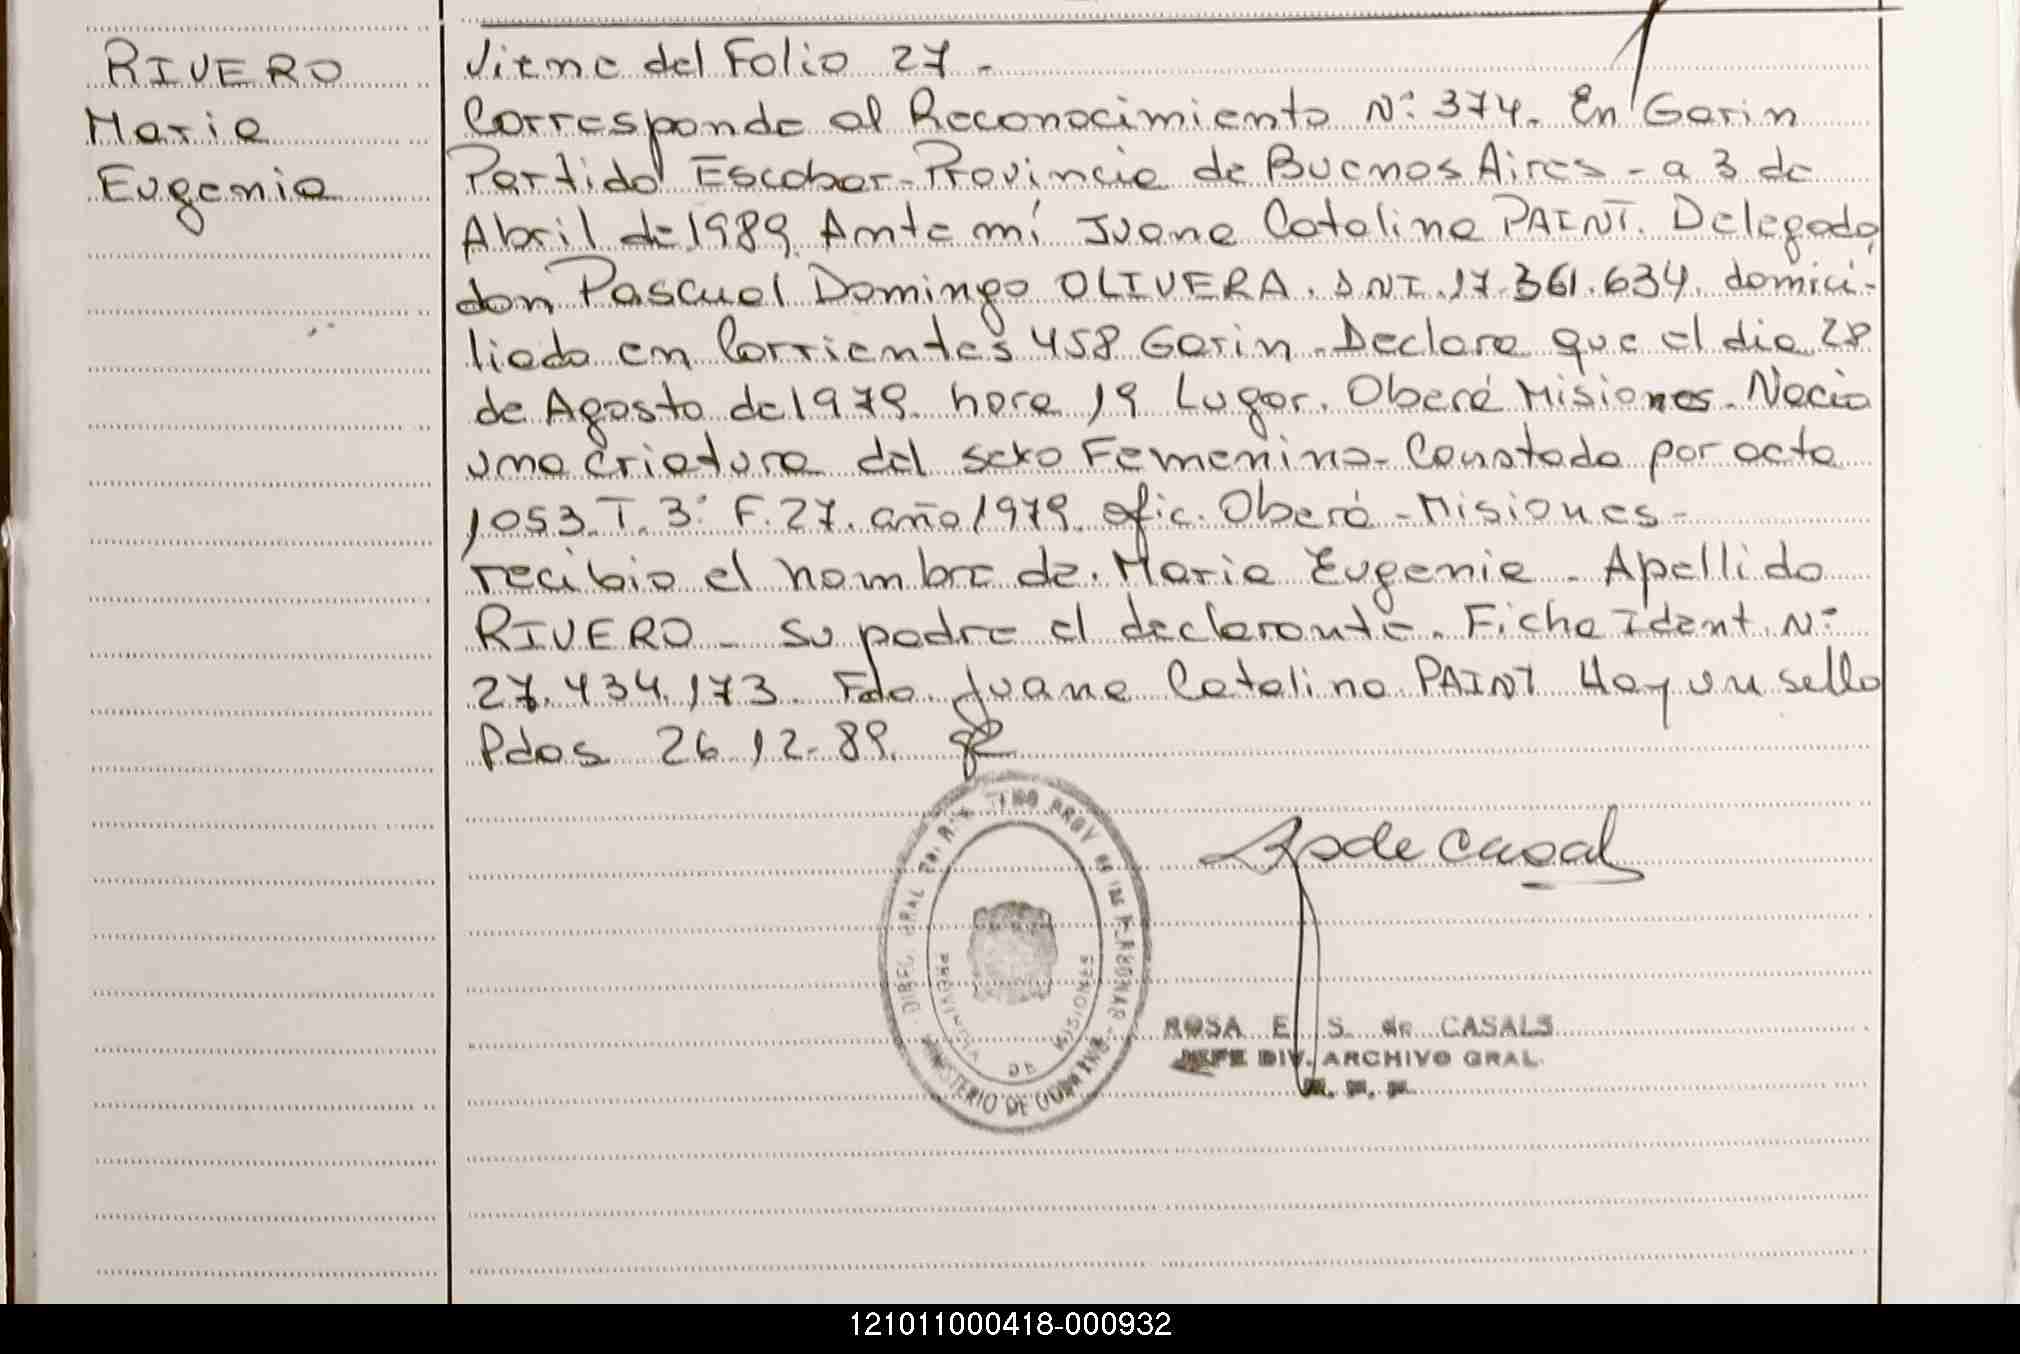 RIVERO
Maria
Eugenia
Viene del Folio 27 -
Corresponde al Reconocimiento N: 374. En Garin
Partido Escobar - Provincia de Buenos Aires - a 3 de
Abril de 1989. Ante mí Juana Catalina PAINT. Delegada,
don Pascual Domingo OLIVERA. DNI. 17.361.634. domici-
liado en Corrientes 458 Garin - Declara que el dia 28
de Agosto de 1979 hora 19 Lugar. Oberá Misiones. Nacio
una criatura del sexo Femenino - Constatada por acta
1053. T. 3: F. 27. año 1979. ofic. Oberá - Misiones -
recibio el nombre de. Maria Eugenia - Apellido
RIVERO - su padre el declarante. Ficha Ident. N:
27.434.173. Fdo Juana Catalina PAINT Hay un sello
Pdas 26-12-89.
de Casal
ROSA E. S. de CASALS
JEFE DIV. ARCHIVO GRAL.
PROVINCIA DE MISIONES
MINISTERIO DE GOBIERNO
121011000418-000932